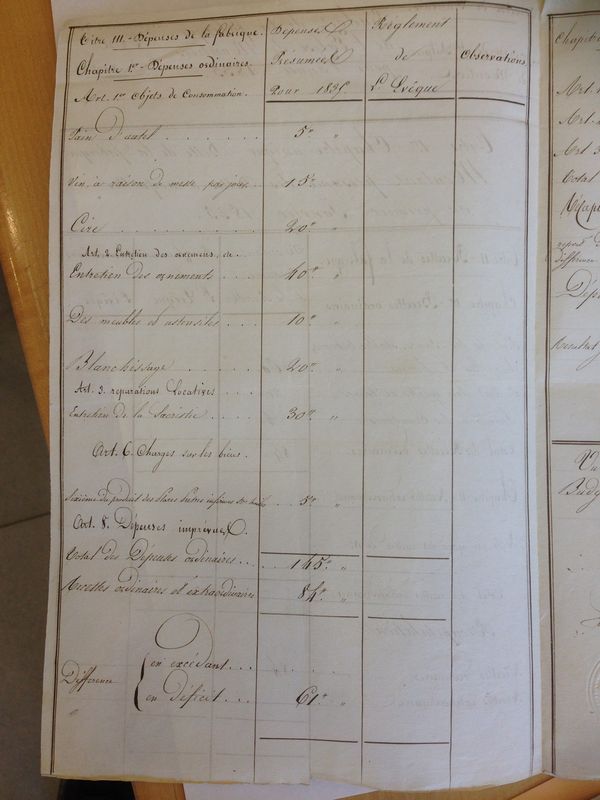 Titre III. - Dépenses de la fabrique. Dépenses Règlement
Chapitre 1er - Dépenses ordinaires. Résumées de Observations
Art. 1er Objets de Consommation. Pour 1835 L'Evêque
Pain d'autel . . . . . . 5" "
Vin, à raison de messe par jour . . 15" "
Cire . . . . . . . . 20" "
Art. 2. Entretien des ornemens, etc.
Entretien des ornements . . . . 40" "
Des meubles et ustensiles . . . 10" "
Blanchissage . . . . . 20" "
Art. 3. réparations locatives . . . .
Entretien de la Sacristie . . . . 30" "
Art. 6. Charges sur les biens.
Sixième du produit des 5" "
Art. 8. Dépenses imprévues.
Total des Dépenses ordinaires . . . 145" "
Recettes ordinaires et extraordinaires 84" "
Différence
en excédant . . .
en déficit . . . 61" "
Chapitre
Art.
Art.
Art. 3
Total
Chap
report
différence
Dép
Résultat
Vu
Budg